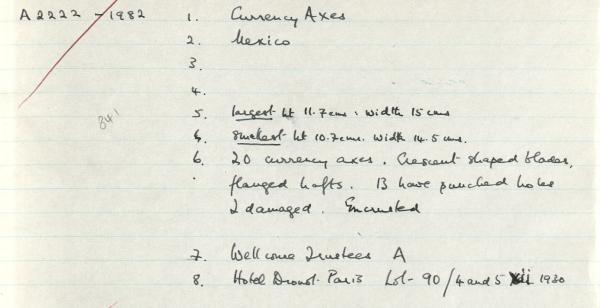 A2222 - 1982 1. Currency Axes
2. Mexico
3.
4.
841
5. largest ht 11.7cms : width 15 cms
6. smallest ht 10.7cms. width 14.5 cms.
6. 20 currency axes. Crescent shaped blades,
flanged hafts. 13 have punched holes
2 damaged. Encrusted
7. Wellcome Trustees A
8. Hotel Drouot. Paris Lot- 90 / 4 and 5 xii 1930